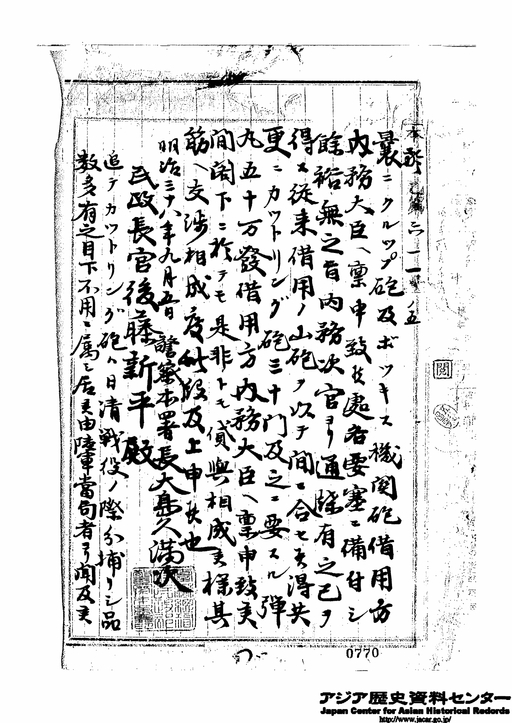 本警乙第二一一号ノ五
曩ニクルツプ砲及ホツキス機関砲借用方
内務大臣ヘ稟申致候処各要塞ニ備付シ
餘裕無之旨内務次官ヨリ通牒有之已ヲ
得ス従来借用ノ山砲ヲ以テ間ニ合セ候得共
更ニカツトリング砲三十門及之ニ要スル弾
丸五十万發借用方内務大臣ヘ稟申致候
間閣下ニ於テモ是非トモ貸與相成候様其
筋ヘ交渉相成度此段及上申候也
明治三十八年九月五日 警察本署長大島久満次
民政長官後藤新平殿
追テカツトリング砲ハ日清戦役ノ際分捕リシ品
数多有之目下不用ニ属シ居候由陸軍当局者ヨリ聞及候
閲
0770
アジア歴史資料センター
Japan Center for Asian Historical Records
http://www.jacar.go.jp/